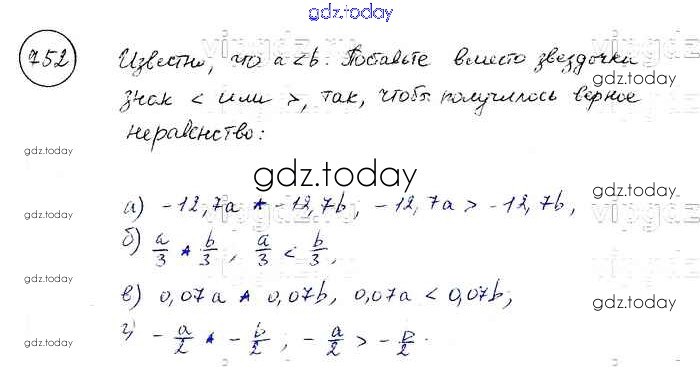 gdz.today
752
Известно, что a < b. Поставьте вместо звездочки
знак < или >, так, чтобы получилось верное
неравенство:
gdz.today
gdz.today
gdz.today
gdz.today
gdz.today
а) -12,7a * -12,7b, -12,7a > -12,7b,
б) a/3 * b/3, a/3 < b/3,
gdz.today
gdz.today
в) 0,07a * 0,07b, 0,07a < 0,07b;
г) -a/2 * -b/2; -a/2 > -b/2.
gdz.today
gdz.today